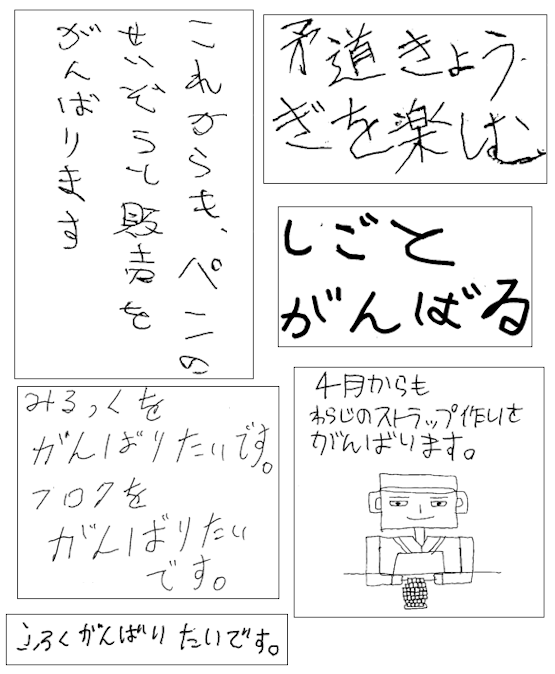 これからも、ペンの
せいぞうと販売を
がんばります
矛道きょう
ぎを楽しむ
しごと
がんばる
みるっくを
がんばりたいです。
フロクを
がんばりたい
です。
4月からも
わらじのストラップ作りを
がんばります。
ふろくがんばりたいです。